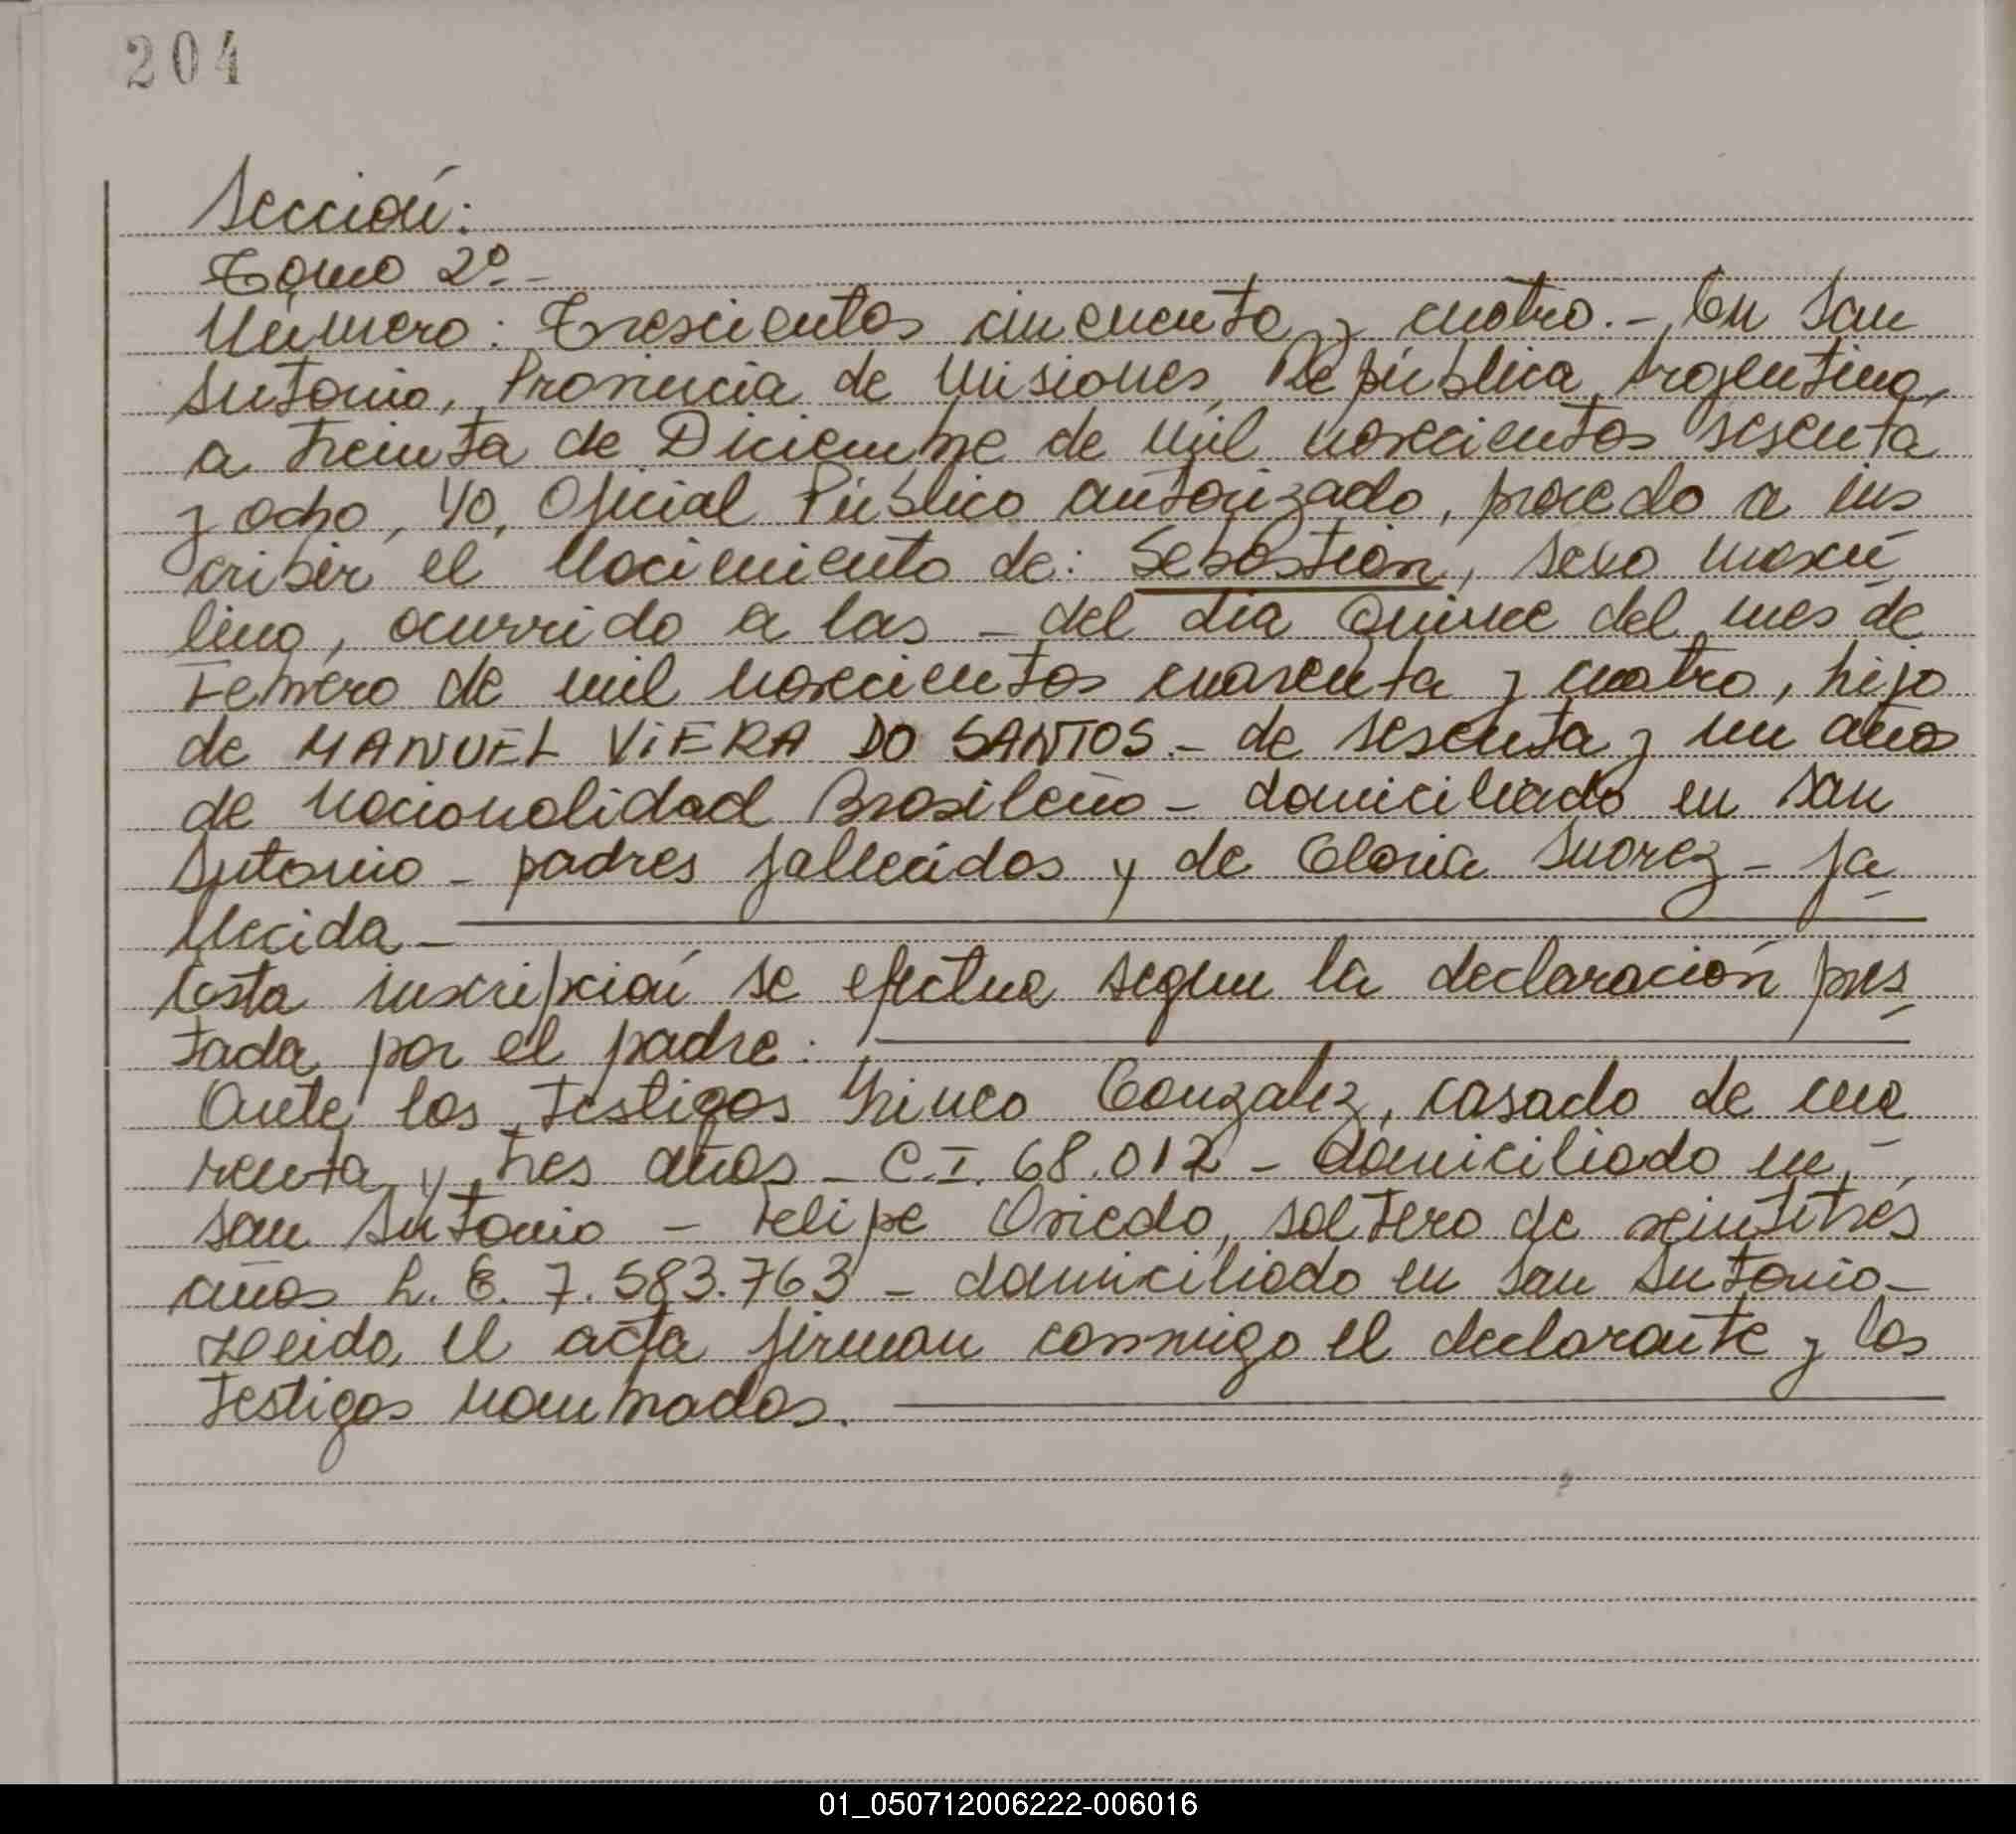 204
Sección:
Tomo 2º-
Número: Trescientos cincuenta y cuatro.- En San
Antonio, Provincia de Misiones, República Argentina,
a treinta de Diciembre de mil novecientos sesenta
y ocho, yo, Oficial Público autorizado, procedo a ins
cribir el Nacimiento de: Sebastian, sexo mascu
lino, ocurrido a las - del dia Quince del mes de
Febrero de mil novecientos cuarenta y cuatro, hijo
de MANUEL ViERA DO SANTOS.- de sesenta y un años
de nacionalidad Brasileño - domiciliado en San
Antonio - padres fallecidos y de Gloria Suarez - fa
llecida -
Esta inscripción se efectua segun la declaración pres
tada por el padre:
Ante los testigos Gonzalez, casado de cua
renta y tres años - C.I. 68.012 - domiciliado en
San Antonio - Felipe Oviedo, soltero de veintitrés
años L. E. 7.583.763 - domiciliado en San Antonio-
Leida el acta firman conmigo el declarante y los
testigos nombrados.
01_050712006222-006016